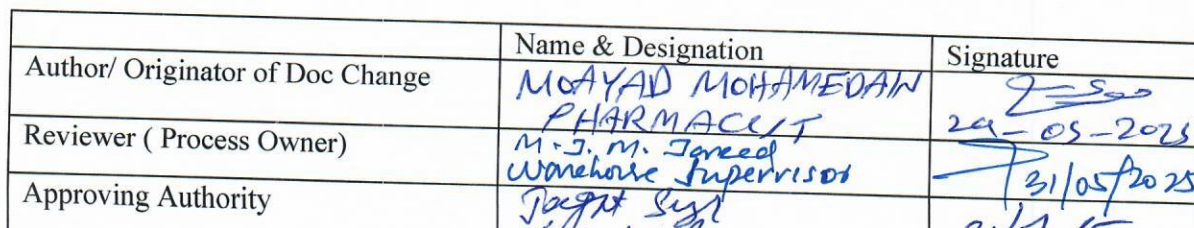 Name & Designation Signature
Author/ Originator of Doc Change MOAYAD MOHAMEDAIN
PHARMACIST 29-05-2025
Reviewer ( Process Owner) M.J.M. Javeed
Warehouse Supervisor 31/05/2025
Approving Authority